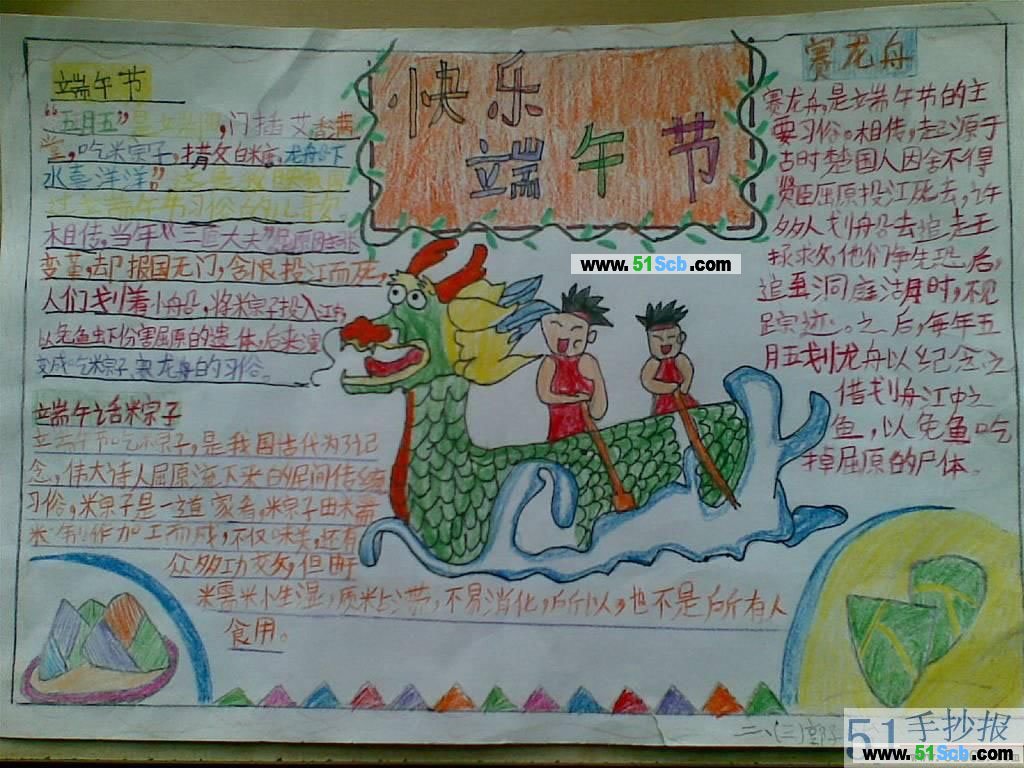 快乐
端午节
端午节
"五月五"是端阳,门插艾香满
堂,吃粽子,龙舟下
水喜洋洋"
过端午节习俗的儿歌
相传,当年"三闾大夫"屈原因主张
变革,却报国无门,含恨投江而死,
人们划着小船,将粽子投入江中,
以免鱼虾伤害屈原的遗体,后来演
变成吃粽子,赛龙舟的习俗。
端午话粽子
端午节吃粽子,是我国古代为了记
念,伟大诗人屈原流下来的民间传统
习俗,粽子是一道家肴,粽子由糯
米制作加工而成,不仅味美,还有
众多功效,但由于
米需米小生湿,质粘滞,不易消化,所以,也不是所有人
食用。
赛龙舟
赛龙舟,是端午节的主
要习俗。相传,起源于
古时楚国人因舍不得
贤臣屈原投江死去,许
多人划船去追赶王
拯求,他们争先恐后,
追至洞庭湖时,不见
踪迹。之后,每年五
月五划龙舟以纪念之
借划舟江中之
鱼,以免鱼吃
掉屈原的尸体。
www.51Scb.com
三、(三)
51手抄报
www.51Scb.com